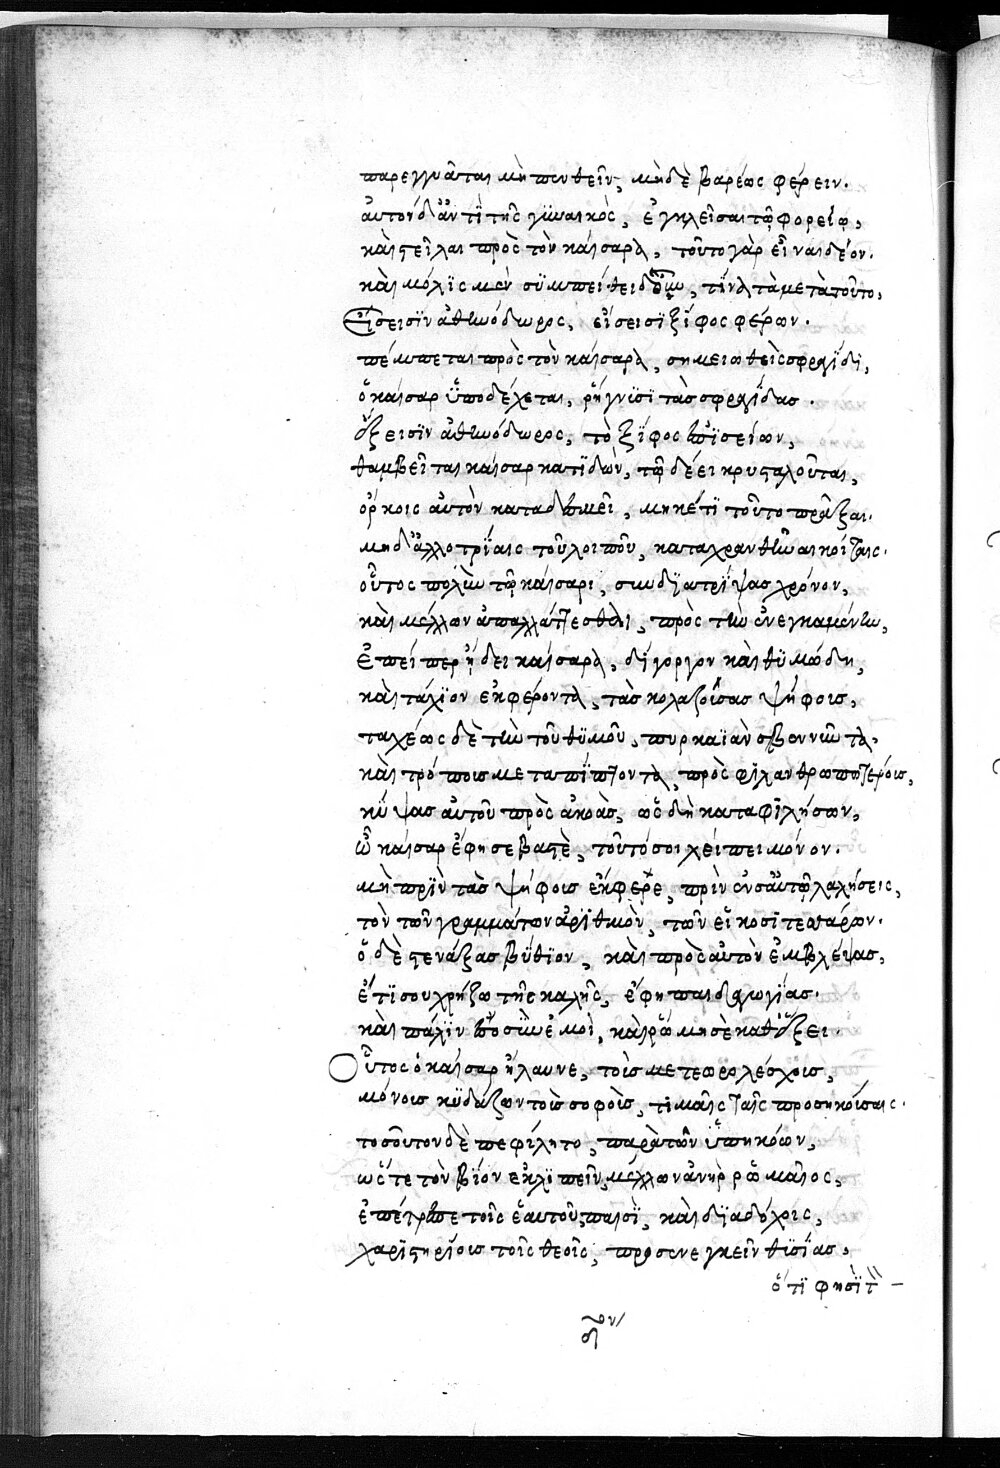 παρεγγυᾶται μὴ πενθεῖν, μηδὲ βαρέως φέρειν.
αὐτὸν δ' ἀντὶ τῆς γυναικὸς, ἐγκλεῖσαι τῷ φορείῳ,
καὶ στεῖλαι πρὸς τὸν καίσαρα, τοῦτο γὰρ εἶναι δέον.
καὶ μόλις μὲν συμπείθει δ' ὅμως, τίνα τὰ μετὰ τοῦτο,
Εἴσεισιν ἀθηνόδωρος, εἴσεισι ξίφος φέρων.
πέμπεται πρὸς τὸν καίσαρα, σημειωθεὶς σφραγίδι,
ὁ καίσαρ ὑποδέχεται, ῥήγνυσι τὰς σφραγίδας.
ἔξεισιν ἀθηνόδωρος, τὸ ξίφος ἐπισείων,
θαμβεῖται καίσαρ κατιδὼν, τῷ δέει κρυσταλοῦται,
ὅρκοις αὐτὸν καταδεσμεῖ, μηκέτι τοῦτο πρᾶξαι.
μηδ' ἀλλοτρίαις τοῦ λοιποῦ, καταχρανθῆναι κοίταις.
οὗτος πολὺν τῷ καίσαρι, συνδιατρίψας χρόνον,
καὶ μέλλων ἀπαλλάττεσθαι, πρὸς τὴν ἐνεγκαμένην,
ἐπείπερ ᾔδει καίσαρα, δίγοργον καὶ θυμώδη,
καὶ τάχιον ἐκφέροντα, τὰς κολαζούσας ψήφοις,
ταχέως δὲ τὴν τοῦ θυμοῦ, πυρκαϊὰν σβεννῦντα.
καὶ τρόποις μεταπίπτοντα, πρὸς φιλανθρωποτέροις,
κύψας αὐτοῦ πρὸς ἀκοὰς, ὡς δὴ καταφιλήσων,
ὦ καίσαρ ἔφη σεβαστὲ, τοῦτό σοι λείπει μόνον.
μὴ πρὶν τὰς ψήφοις ἔκφερε, πρὶν ἐν σαυτῷ λαλήσεις,
τὸν τῶν γραμμάτων ἀριθμὸν, τῶν εἴκοσι τεσσάρων.
ὁ δὲ στενάξας βύθιον, καὶ πρὸς αὐτὸν ἐμβλέψας,
ἔτι σου χρήζω τῆς καλῆς, ἔφη παιδαγωγίας.
καὶ πάλιν ἦς σὺν ἐμοὶ, καὶ ῥώμη σὲ καθέξει.
Οὗτος ὁ καίσαρ ἤλαυνε, τοῖς μετεωρολέσχοις,
μόνοις κυδάζων τοῖς σοφοῖς, τιμαῖς ταῖς προσηκούσαις.
τοσοῦτον δὲ πεφίλητο, παρὰ τῶν ὑπηκόων,
ὥστε τὸν βίον ἐκλιπεῖν, μέλλων ἀνὴρ ῥωμαῖος,
ἐπέτρεπε τοῖς ἑαυτοῦ, παισὶ, καὶ διαδόχοις,
χαριστηρίοις τοῖς θεοῖς, προσενεγκεῖν θυσίας,
ὅτι φησὶ τ